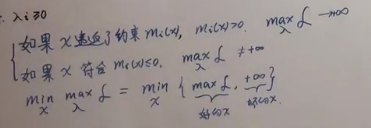 ∴ λi≥0
如果 x 违反了约束 mi(x), mi(x)>0. max_λ L → +∞
如果 x 符合 mi(x)≤0. max_λ L ≠ +∞
min_x max_λ L = min_x { max_λ L, +∞ }
好的x 坏的x